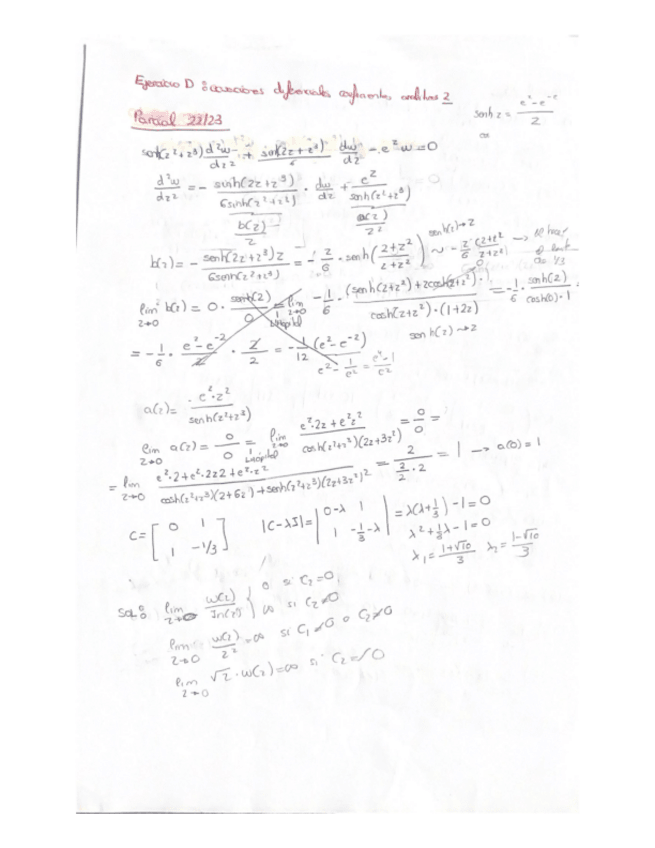 Ejercicio D: Ecuaciones diferenciales coeficientes analíticos 2
senh z = (e^z - e^-z)/2
Parcial 22/23
senh(z²+z³) d²w/dz² + sinh(2z+z³)/6 dw/dz - e^z w = 0
d²w/dz² = - sinh(2z+z³)/(6sinh(z²+z³)) · dw/dz + e^z/(senh(z²+z³))
b(z)/z a(z)/z²
b(z) = - senh(2z+z³)z/(6senh(z²+z³)) = - z/6 · senh((2+z²)/(z+z²)) ~ - z/6 (2+z²)/(z+z²) senh(z)→z
lim z→0 b(z) = 0 · senh(2)/0 = L'Hôpital lim z→0 - 1/6 · (senh(2+z²) + 2zcosh(2+z²))/(cosh(z+z²)·(1+2z)) = - 1/6 · senh(2)/(cosh(0)·1) =
= - 1/6 · (e²-e^-2)/2 · 2/2 = - 1/12 (e²-e^-2) senh(z)→z
e² - 1/e² = (e^4-1)/e²
a(z) = e^z·z²/senh(z²+z³)
lim z→0 a(z) = 0/0 = L'Hôpital lim z→0 (e^z·2z+e^z z²)/(cosh(z²+z³)(2z+3z²)) = 0/0 =
= lim z→0 (e^z·2+e^z·2z2+e^z·z²)/(cosh(z²+z³)(2+6z)+senh(z²+z³)(2z+3z²)²) = = 1 → a(0) = 1
C = [0 1; 1 -1/3] |C-λI| = |0-λ 1; 1 -1/3-λ| = λ(λ+1/3) - 1 = 0
λ²+1/3λ-1=0
λ₁ = (1+√10)/3 λ₂ = (1-√10)/3
Sol: lim z→0 w(z)/ln(z) { 0 si C₂=0
∞ si C₂≠0
lim z→0 w(z)/z² = ∞ si C₁≠0 o C₂≠0
lim z→0 √z · w(z) = ∞ si C₂≠0